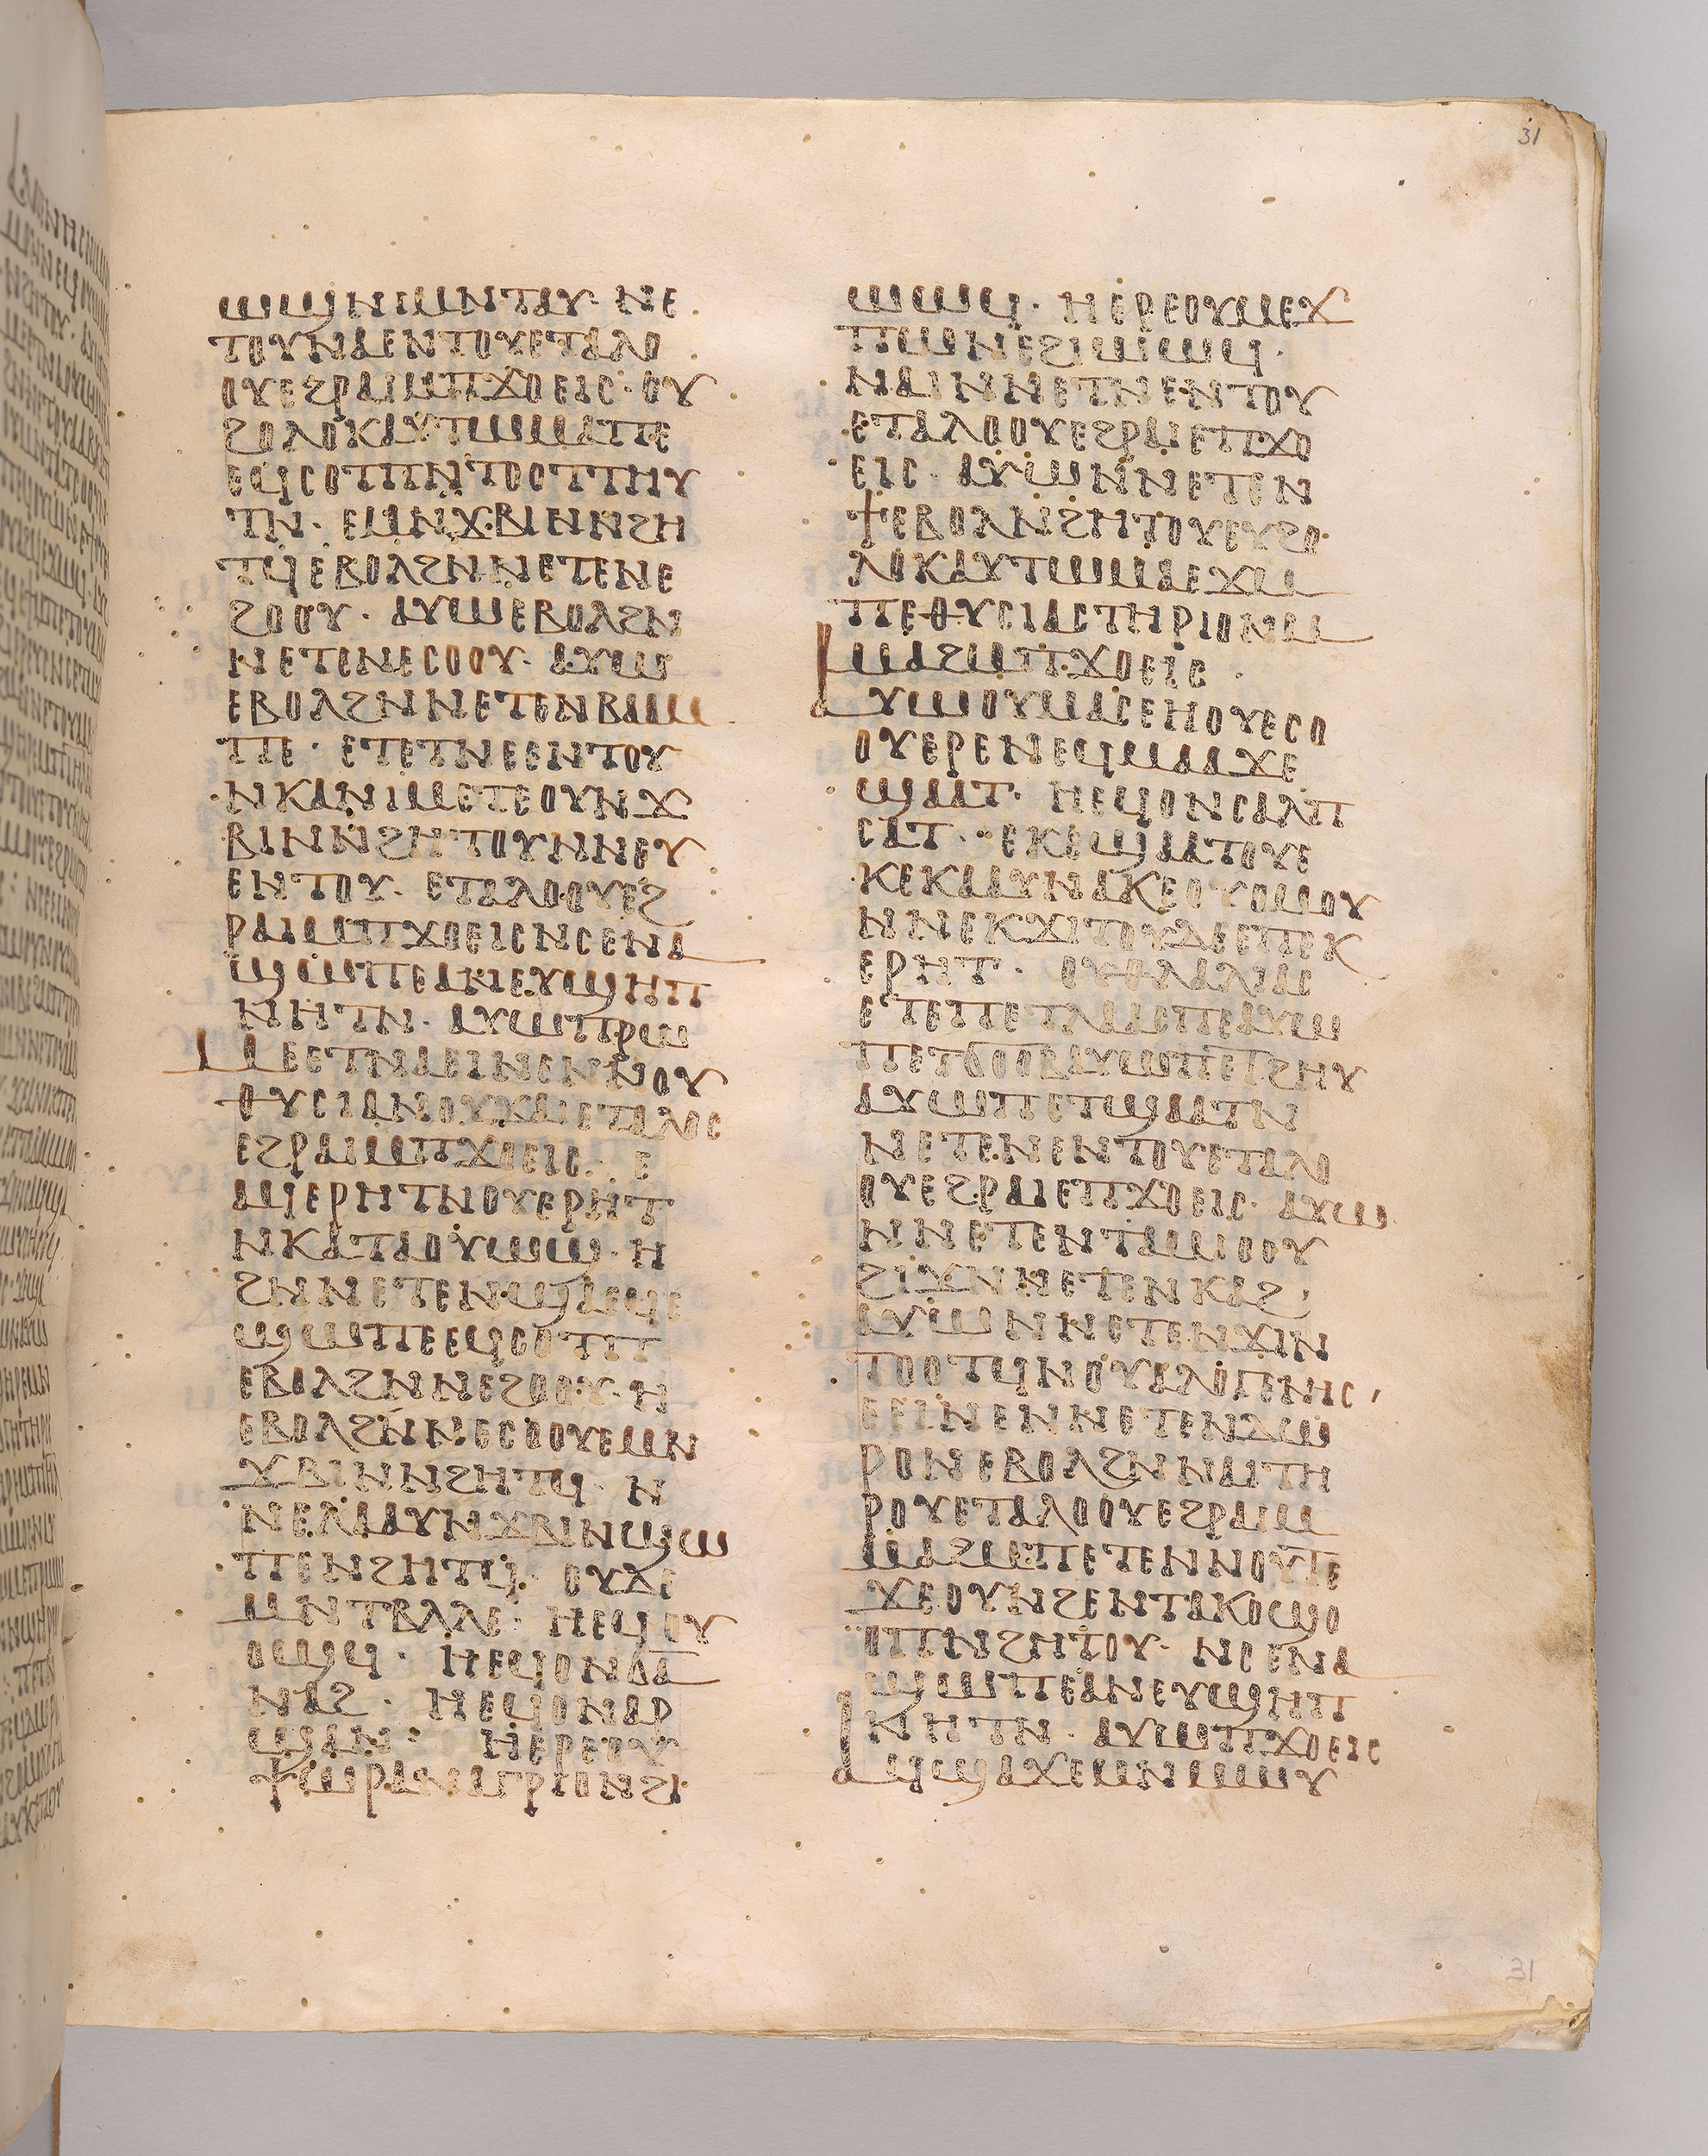 31
ⲱϣⲛⲓⲙⲛⲧⲁⲩ· ⲛⲉ
ⲧⲟⲩⲛⲁⲉⲛⲧⲟⲩⲉⲧⲁⲗⲟ
ⲟⲩⲉϩⲣⲁⲓⲙⲡϫⲟⲉⲓⲥ· ⲟⲩ
ϩⲟⲗⲟⲕⲁⲩⲧⲱⲙⲁⲡⲉ
ⲉϥⲥⲟⲧⲡⲛⲧⲟⲟⲧⲧⲏⲩ
ⲧⲛ· ⲉⲙⲛϫⲃⲓⲛⲛϩⲏ
ⲧϥⲉⲃⲟⲗϩⲛⲛⲉⲧⲉⲛⲉ
ϩⲟⲟⲩ· ⲁⲩⲱⲉⲃⲟⲗϩⲛ
ⲛⲉⲧⲉⲛⲉⲥⲟⲟⲩ· ⲁⲩⲱ
ⲉⲃⲟⲗϩⲛⲛⲉⲧⲉⲛⲃⲁⲁⲙ
ⲡⲉ· ⲉⲧⲉⲧⲛⲉⲉⲛⲧⲟⲩ
ⲛⲕⲁⲛⲓⲙⲉⲧⲉⲟⲩⲛϫ
ⲃⲓⲛⲛϩⲏⲧⲟⲩⲛⲛⲉⲩ
ⲉⲛⲧⲟⲩ· ⲉⲧⲁⲗⲟⲟⲩⲉϩ
ⲣⲁⲓⲙⲡϫⲟⲉⲓⲥⲛⲥⲉⲛⲁ
ϣⲱⲡⲉⲁⲛⲉⲩϣⲏⲡ
ⲛⲏⲧⲛ· ⲁⲩⲱⲡⲣⲱ
ⲙⲉⲉⲧⲛⲁⲉⲓⲛⲉⲛⲛⲟⲩ
ⲑⲩⲥⲓⲁⲛⲟⲩϫⲁⲓⲉⲧⲁⲗⲟⲥ
ⲉϩⲣⲁⲓⲙⲡϫⲟⲉⲓⲥ· ⲉ
ⲁϥⲉⲣⲏⲧⲛⲟⲩⲉⲣⲏⲧ
ⲛⲕⲁⲧⲁⲟⲩⲱϣ· ⲏ
ϩⲛⲛⲉⲧⲉⲛϣⲁⲉϥⲉ
ϣⲱⲡⲉⲉϥⲥⲟⲧⲡ
ⲉⲃⲟⲗϩⲛⲛⲉϩⲟⲟⲩ· ⲏ
ⲉⲃⲟⲗϩⲛⲛⲉⲥⲟⲟⲩⲉⲙⲛ
ϫⲃⲓⲛⲛϩⲏⲧϥ· ⲛ
ⲛⲉⲗⲁⲁⲩⲛϫⲃⲓⲛϣⲱ
ⲡⲉⲛϩⲏⲧϥ· ⲟⲩⲇⲉ
ⲙⲛⲧⲃⲗⲗⲉ· ⲏⲉϥⲟⲩ
ⲟϣϥ· ⲏⲉϥⲟⲛⲁⲁ
ⲛⲁϩ· ⲏⲉϥⲟⲛⲁⲣ
ϣⲁⲛ· ⲏⲉⲣⲉⲟⲩ
ⲯⲱⲣⲁⲛⲁⲅⲣⲓⲟⲛϩⲓ
ⲱⲱϥ· ⲏⲉⲣⲉⲟⲩⲙⲉϫ
ⲡⲱⲛⲉϩⲓⲱⲱϥ·
ⲛⲁⲓⲛⲛⲉⲧⲛⲉⲛⲧⲟⲩ
ⲉⲧⲁⲗⲟⲟⲩⲉϩⲣⲁⲓⲉⲡϫⲟ
ⲉⲓⲥ· ⲁⲩⲱⲛⲛⲉⲧⲉⲛ
ϯⲉⲃⲟⲗⲛϩⲏⲧⲟⲩⲉⲩϩⲟ
ⲗⲟⲕⲁⲩⲧⲱⲙⲁⲉϫⲙ
ⲡⲉⲑⲩⲥⲓⲁⲥⲧⲏⲣⲓⲟⲛⲙ
ⲙⲁϩⲙⲡϫⲟⲉⲓⲥ·
ⲁⲩⲱⲟⲩⲙⲁⲥⲉⲏⲟⲩⲉⲥⲟ
ⲟⲩⲉⲣⲉⲛⲉϥⲙⲁⲁϫⲉ
ϣⲁⲁⲧ· ⲏⲉϥⲟⲛⲥⲁⲗⲡ
ⲥⲁⲧ· ⲉⲕⲉϣⲁⲁⲧⲟⲩⲉ
ⲕⲉⲕⲁⲁⲩⲛⲁⲕⲉⲟⲩⲟⲙⲟⲩ
ⲛⲛⲉⲕϫⲓⲧⲟⲩⲇⲉⲉⲡⲉⲕ
ⲉⲣⲏⲧ· ⲟⲩⲑⲗⲁⲗⲓⲁⲉ
ⲉⲧⲉⲡⲉⲧⲗⲁⲁⲉⲡⲉⲁⲩⲱ
ⲡⲉⲧϭⲟⲟⲃⲁⲩⲱⲡⲉⲧϩⲏⲩ
ⲁⲩⲱⲡⲉⲧϣⲁⲁⲧⲛ
ⲛⲉⲧⲉⲛⲉⲛⲧⲟⲩⲉⲧⲁⲗⲟ
ⲟⲩⲉϩⲣⲁⲓⲉⲡϫⲟⲉⲓⲥ· ⲁⲩⲱ
ⲛⲛⲉⲧⲉⲛⲧⲁⲙⲓⲟⲟⲩ
ϩⲓϫⲛⲛⲉⲧⲉⲛⲕⲁϩ·
ⲁⲩⲱⲛⲛⲉⲧⲉⲛϫⲓⲛ
ⲧⲟⲟⲧϥⲛⲟⲩⲁⲗⲟⲅⲉⲛⲏⲥ
ⲉⲉⲓⲛⲉⲛⲛⲉⲧⲉⲛⲇⲱ
ⲣⲟⲛⲉⲃⲟⲗϩⲛⲛⲁⲓⲧⲏ
ⲣⲟⲩⲉⲧⲁⲗⲟⲟⲩⲉϩⲣⲁⲓⲙ
ⲙⲁϩⲙⲡⲉⲧⲉⲛⲛⲟⲩⲧⲉ
ϫⲉⲟⲩⲛϩⲉⲛⲧⲁⲕⲟϣⲟ
ⲟⲡⲛϩⲏⲧⲟⲩ· ⲛⲥⲉⲛⲁ
ϣⲱⲡⲉⲁⲛⲉⲩϣⲏⲡ
ⲛⲏⲧⲛ· ⲁⲩⲱⲡϫⲟⲉⲓⲥ
ⲁϥϣⲁϫⲉⲙⲛⲙⲱⲩ
31